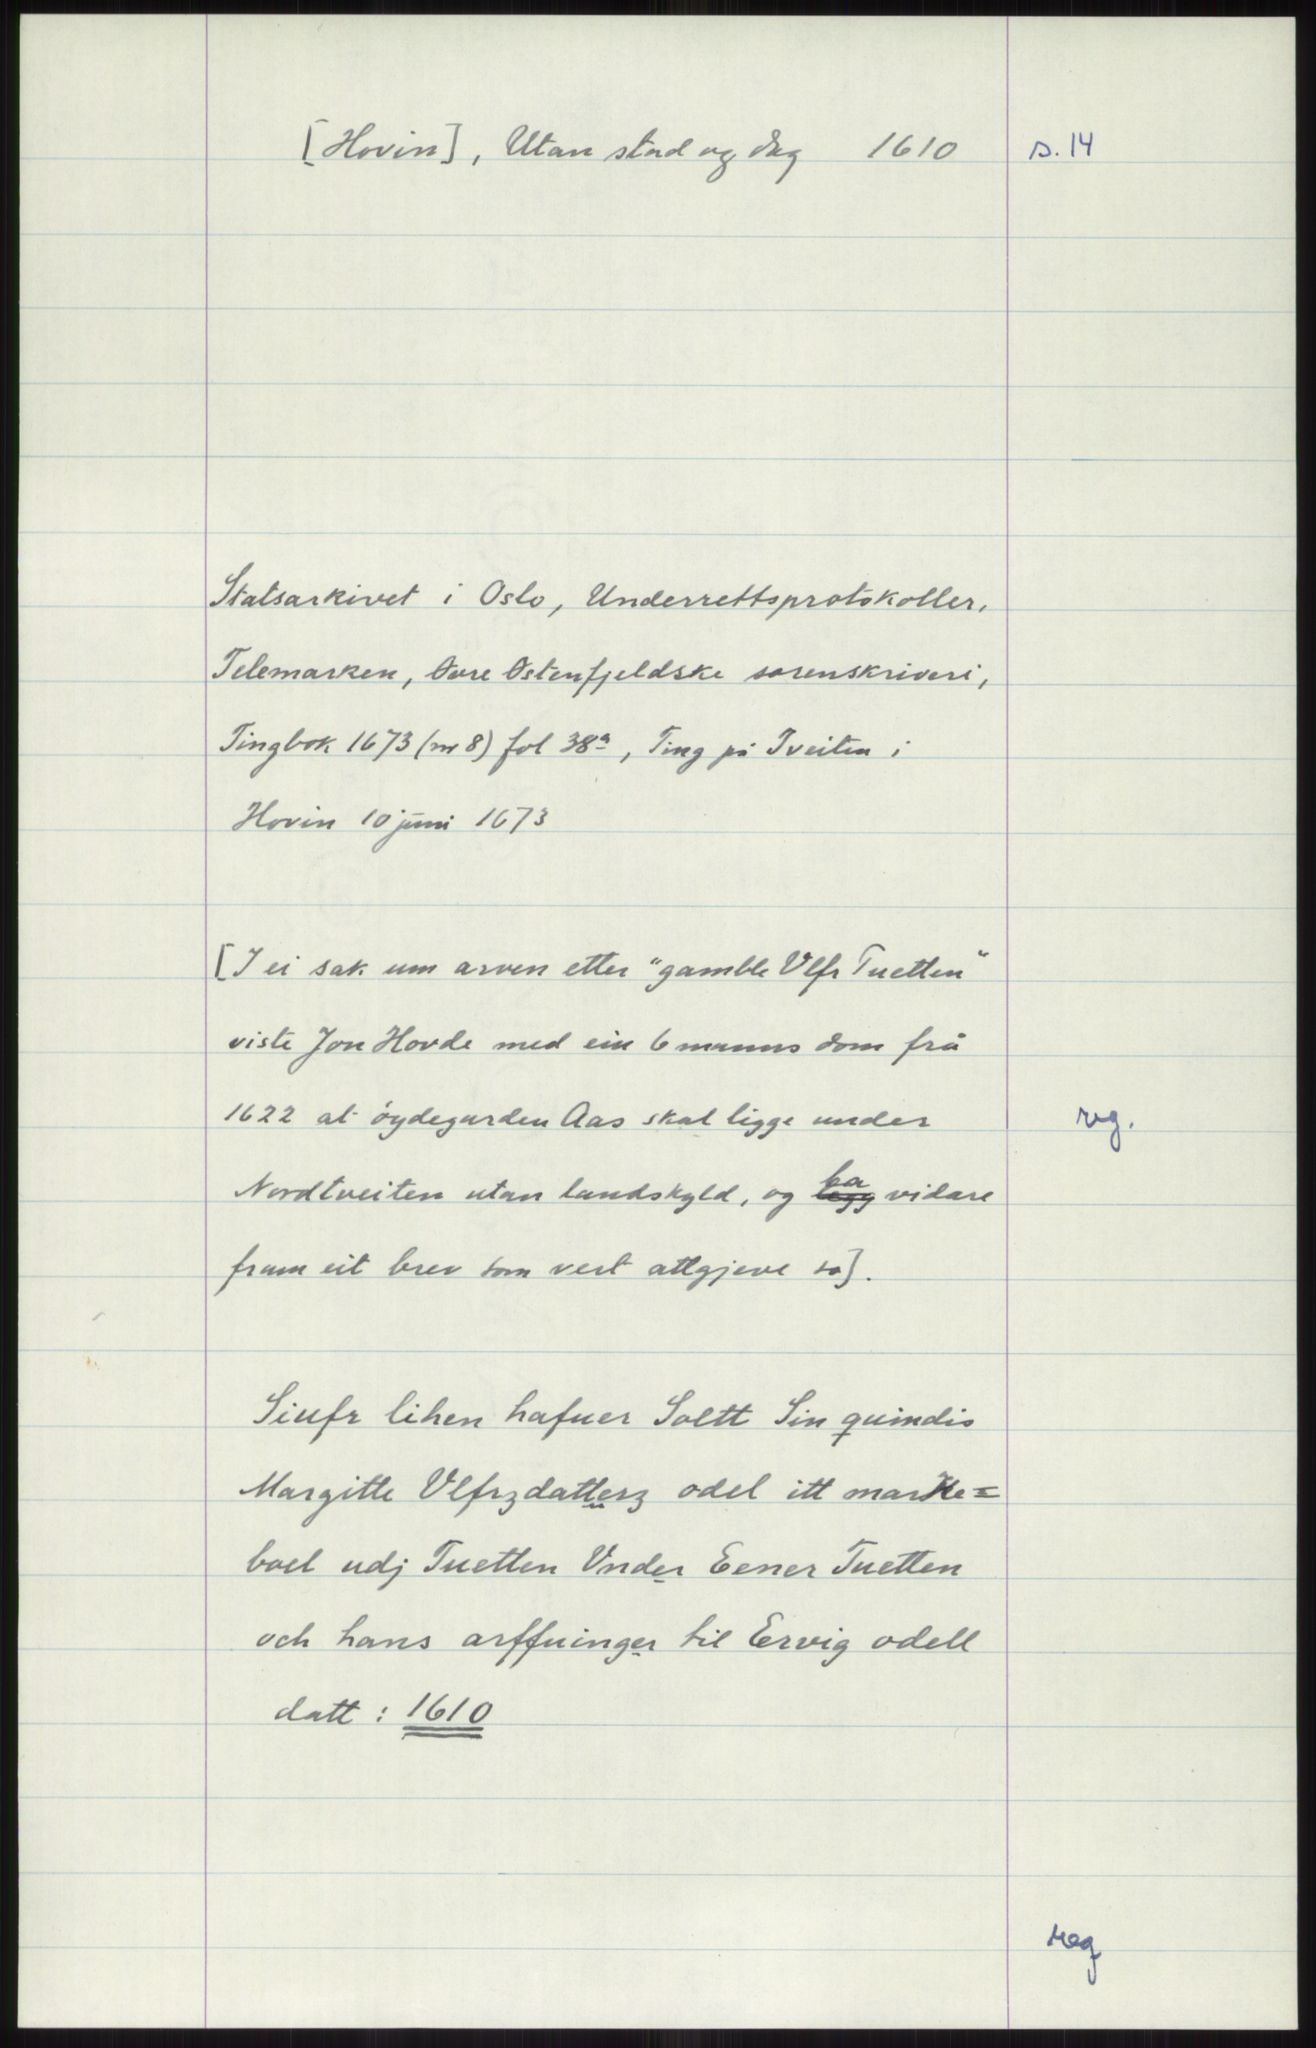 [Hovin], Utan stad og dag 1610 s. 14
Statsarkivet i Oslo, Underrettsprotokoller,
Telemarken, Øvre Østenfjeldske sorenskriveri,
Tingbok 1673 (nr 8) fol 38a, Ting på Tveiten i
Hovin 10 juni 1673
[I ei sak um arven etter "gamble Vlfr Tuetten"
viste Jon Hovde med ein 6 manns dom frå
1622 at øydegarden Aas skal ligge under
rg.
Nordtveiten utan landskyld, og legg ba vidare
fram eit brev som vert attgjeve so].
Siufr lihen hafuer Soltt Sin quindis
Margitte Vlfrzdatterz odel itt marke=
boel udj Tuetten Vnder Eener Tuetten
och hans arffuinger til Ervig odell
datt : 1610
reg